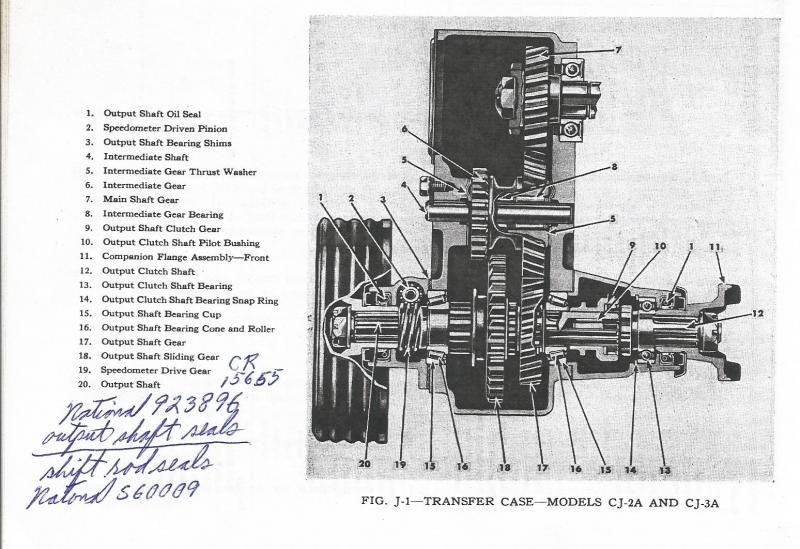 1. Output Shaft Oil Seal
2. Speedometer Driven Pinion
3. Output Shaft Bearing Shims
4. Intermediate Shaft
5. Intermediate Gear Thrust Washer
6. Intermediate Gear
7. Main Shaft Gear
8. Intermediate Gear Bearing
9. Output Shaft Clutch Gear
10. Output Clutch Shaft Pilot Bushing
11. Companion Flange Assembly—Front
12. Output Clutch Shaft
13. Output Clutch Shaft Bearing
14. Output Clutch Shaft Bearing Snap Ring
15. Output Shaft Bearing Cup
16. Output Shaft Bearing Cone and Roller
17. Output Shaft Gear
18. Output Shaft Sliding Gear
19. Speedometer Drive Gear
20. Output Shaft
CR
15655
National 923896
output shaft seals
shift rod seals
National S60009
7
6
5
4
8
5
1 2 3
9 10 1 11
12
20 19 15 16 18 17 16 15 14 13
FIG. J-1—TRANSFER CASE—MODELS CJ-2A AND CJ-3A